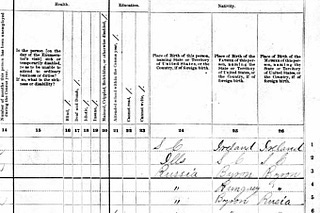 Health. Education. Nativity.
Is the person [on the day of the Enumerator's visit] sick or temporarily disabled, so as to be unable to attend to ordinary business or duties? If so, what is the sickness or disability?
Blind, /
Deaf and Dumb, /
Idiotic, /
Insane, /
Maimed, Crippled, Bedridden, or otherwise disabled, /
Attended school within the Census year, /
Cannot read, /
Cannot write, /
Place of Birth of this person, naming State or Territory of United States, or the Country, if of foreign birth.
Place of Birth of the FATHER of this person, naming the State or Territory of United States, or the Country, if of foreign birth.
Place of Birth of the MOTHER of this person, naming the State or Territory of United States, or the Country, if of foreign birth.
14 15 16 17 18 19 20 21 22 23 24 25 26
S C Ireland Ireland 1
Ills S C 2
Russia Byron Byron 3
" Hungary " 4
" Byron Rusia 5